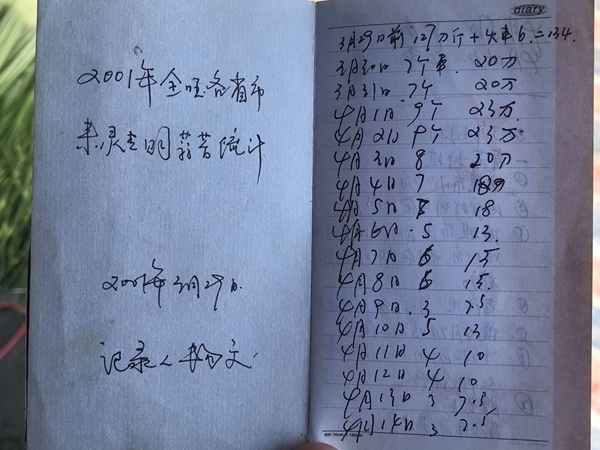 2001年全国各省市
来灵古明蒜苔统计
2001年3月29日
记录人
diary
3月29日前 127万斤+火车6.=134.
3月30日 7个车. 20万
3月31日 7个 20万
4月1日 9个 23万
4月2日 9个 23万
4月3日 8 20万
4月4日 7 18万
4月5日 7 18
4月6日. 5 13.
4月7日 6 15
4月8日 6 15.
4月9日. 3 7.5
4月10日 5 13
4月11日 4 10
4月12日 4 10
4月13日 3 7.5
4月14日 3 7.5